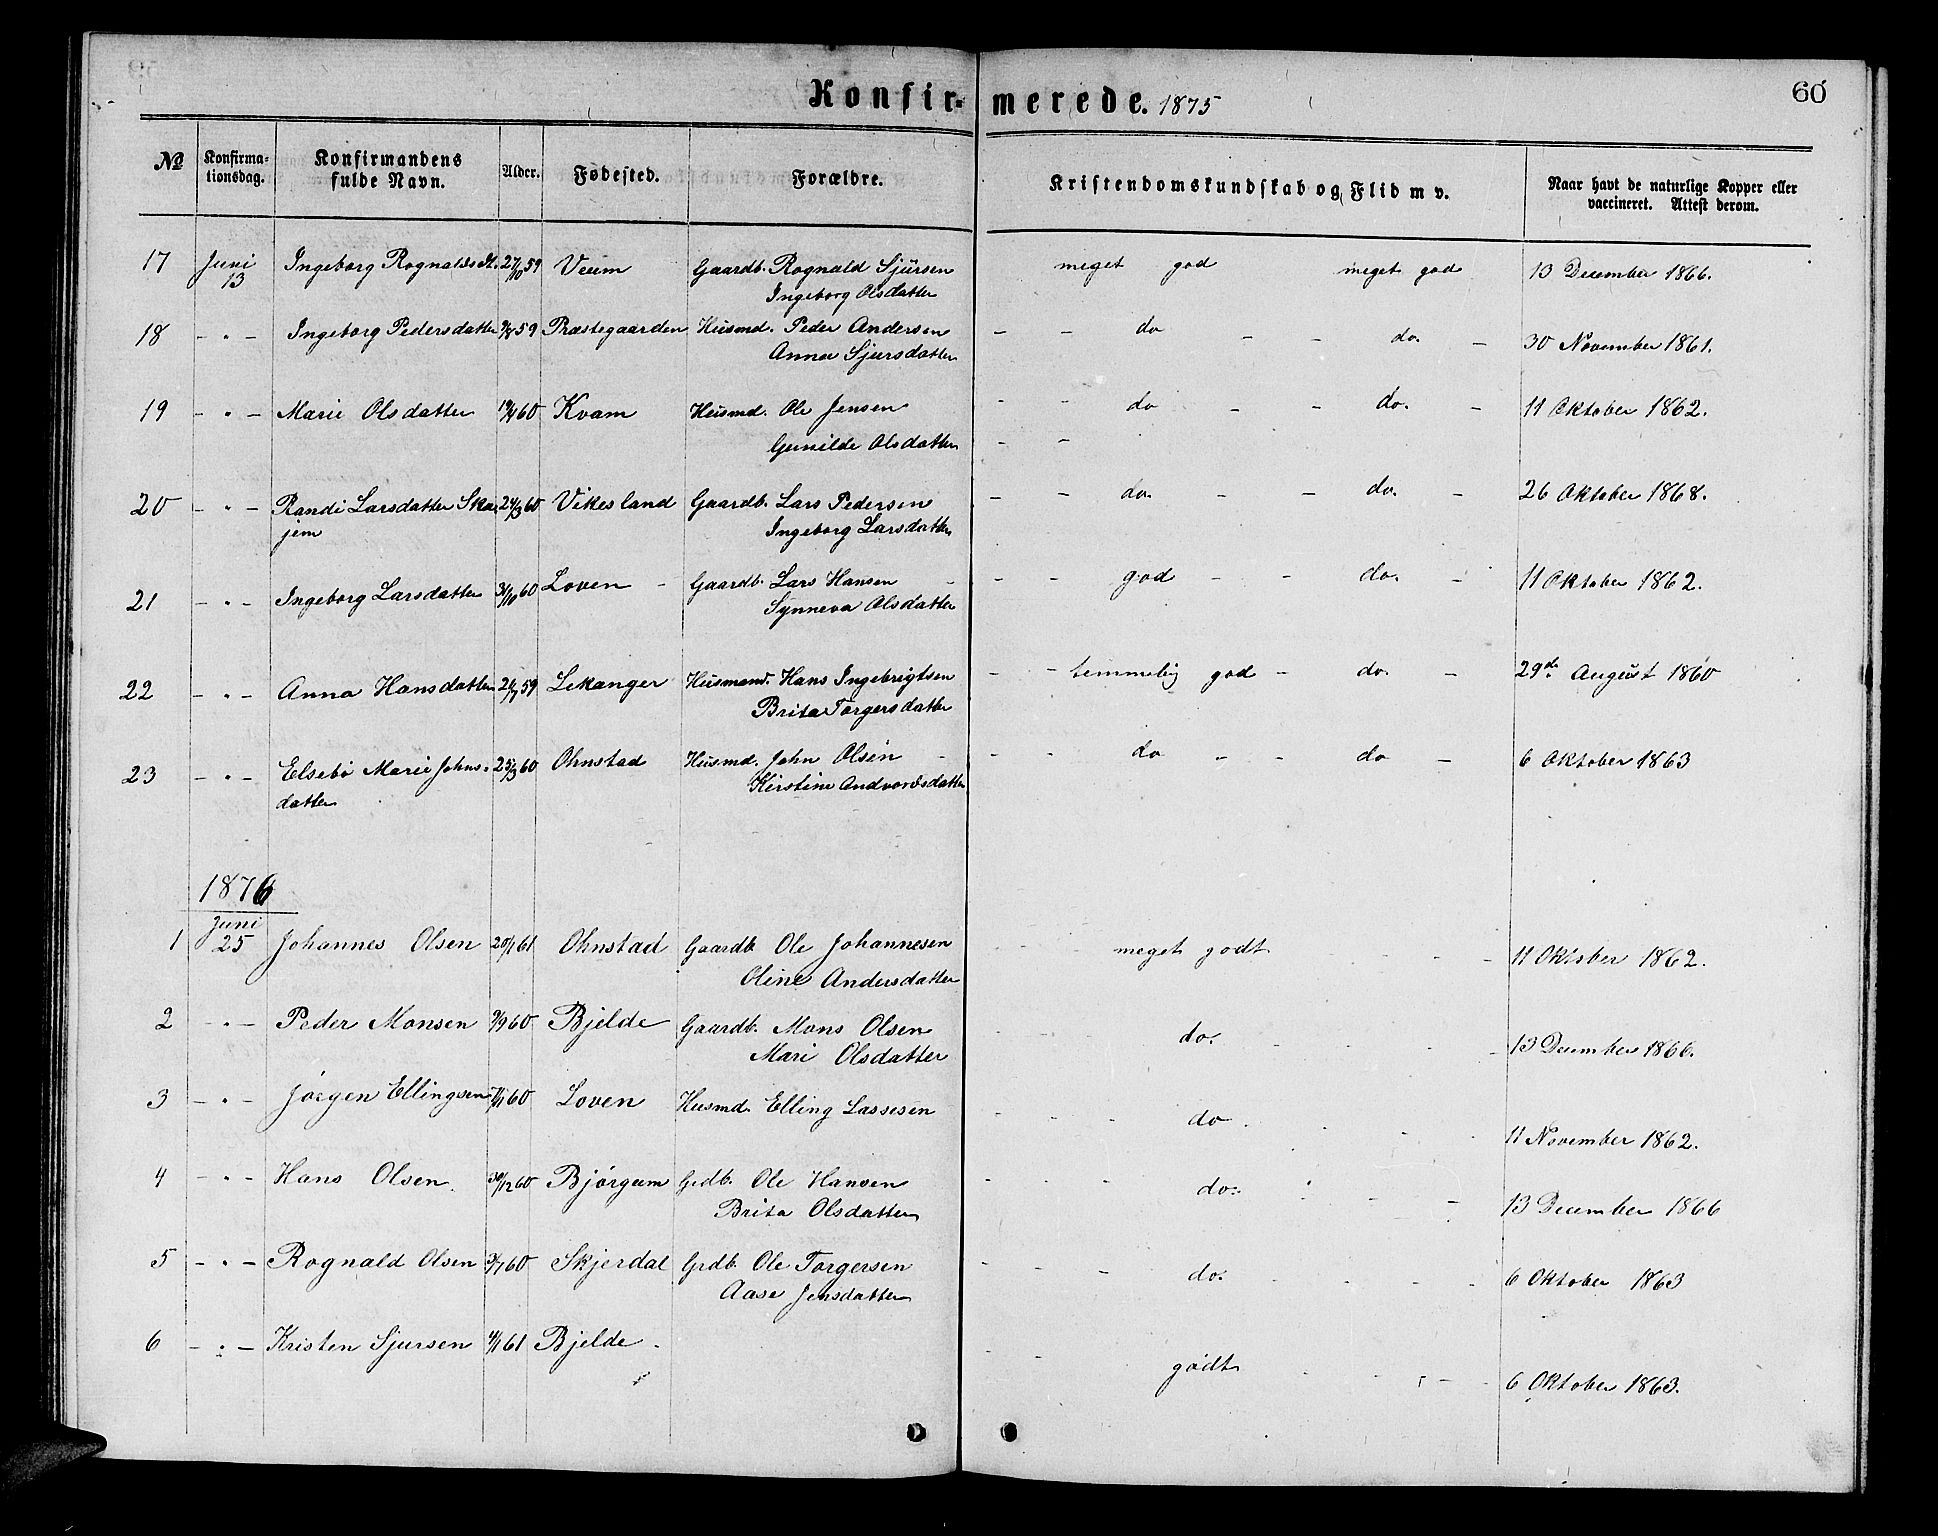 Konfirmerede. 1875
60
No Konfirmationsdag. Konfirmandens fulde Navn. Alder. Fødested. Forældre. Kristendomskundskab og Flid m v. Naar havt de naturlige Kopper eller vaccineret. Attest derom.
17 Juni 13 Ingeborg Rognaldsdt. 27/10 59 Veum Gaardb. Rognald Sjürsen meget god meget god 13 December 1866.
Ingeborg Olsdatter
18 - " - Ingeborg Pedersdatter 59 Præstegaarden Husmd. Peder Andersen - - do - - do. - 30 November 1861.
Anna Sjursdatter
19 - " - Marie Olsdatter 19/4 60 Kvam Husmd. Ole Jensen - - do - - do. - 11 Oktober 1862.
Gunilde Olsdatter - -
20 - " - Randi Larsdatter Ska 24/3 60 Vikesland Gaardb. Lars Pedersen - - do. - - do. - 26 Oktober 1868.
jem Ingeborg Larsdatter
21 - " - Ingeborg Larsdatter 31/10 60 Loven - Gaardb. Lars Hansen - - - god - - do. - 11 Oktober 1862.
Synneva Olsdatter
22 - " - Anna Hansdatter 59 Lekanger Husmand. Hans Ingebrigtsen - - temmelig god - do. - 29de August 1860
Brita Torgersdatter
23 - " - Elsebø Marie Johns- 25/3 60 Ohnstad Husmd. John Olsen - - - do - - do - 6 Oktober 1863
datter Kirstine Andvordsdatter
1876
1 Juni 25 Johannes Olsen 20/1 61 Ohnstad Gaardb. Ole Johannesen meget godt 11 Oktober 1862.
Oline Andersdatter
2 - " - Peder Monsen 9/9 60 Bjelde Gaardb. Mons Olsen do. 13 December 1866.
Mari Olsdatter
3 - " - Jørgen Ellingsen 60 Loven Husmd. Elling Lassesen do 11 November 1862.
4 - " - Hans Olsen. 30/12 60 Bjørgum Grdb. Ole Hansen do. 13 December 1866
Brita Olsdatter
5 - " - Rognald Olsen 60 Skjerdal Grdb. Ole Torgersen do. 6 Oktober 1863
Aase Jensdatter
6 - " - Kristen Sjursen 4/1 61 Bjelde godt 6 Oktober 1863.